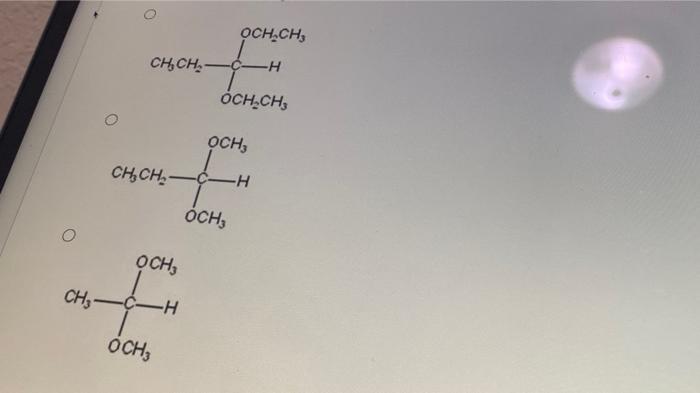 OCH₂CH₃
CH₃CH₂—C—H
OCH₂CH₃
OCH₃
CH₃CH₂—C—H
OCH₃
OCH₃
CH₃—C—H
OCH₃